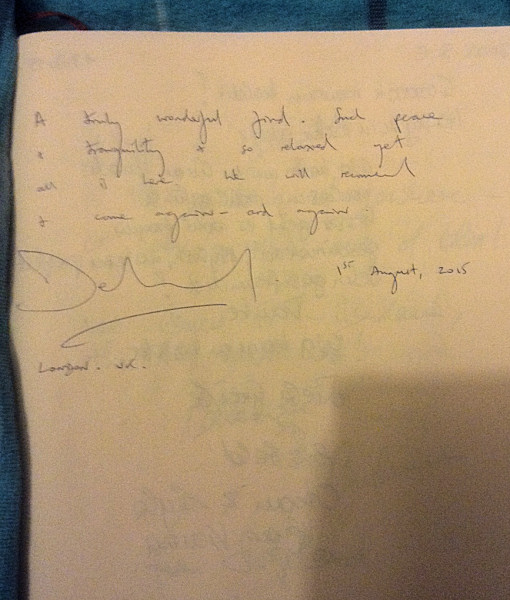 A truly wonderful find. Such peace
& tranquility & so relaxed yet
all is here. We will recommend
& come again - and again
1st August, 2015
London. UK.